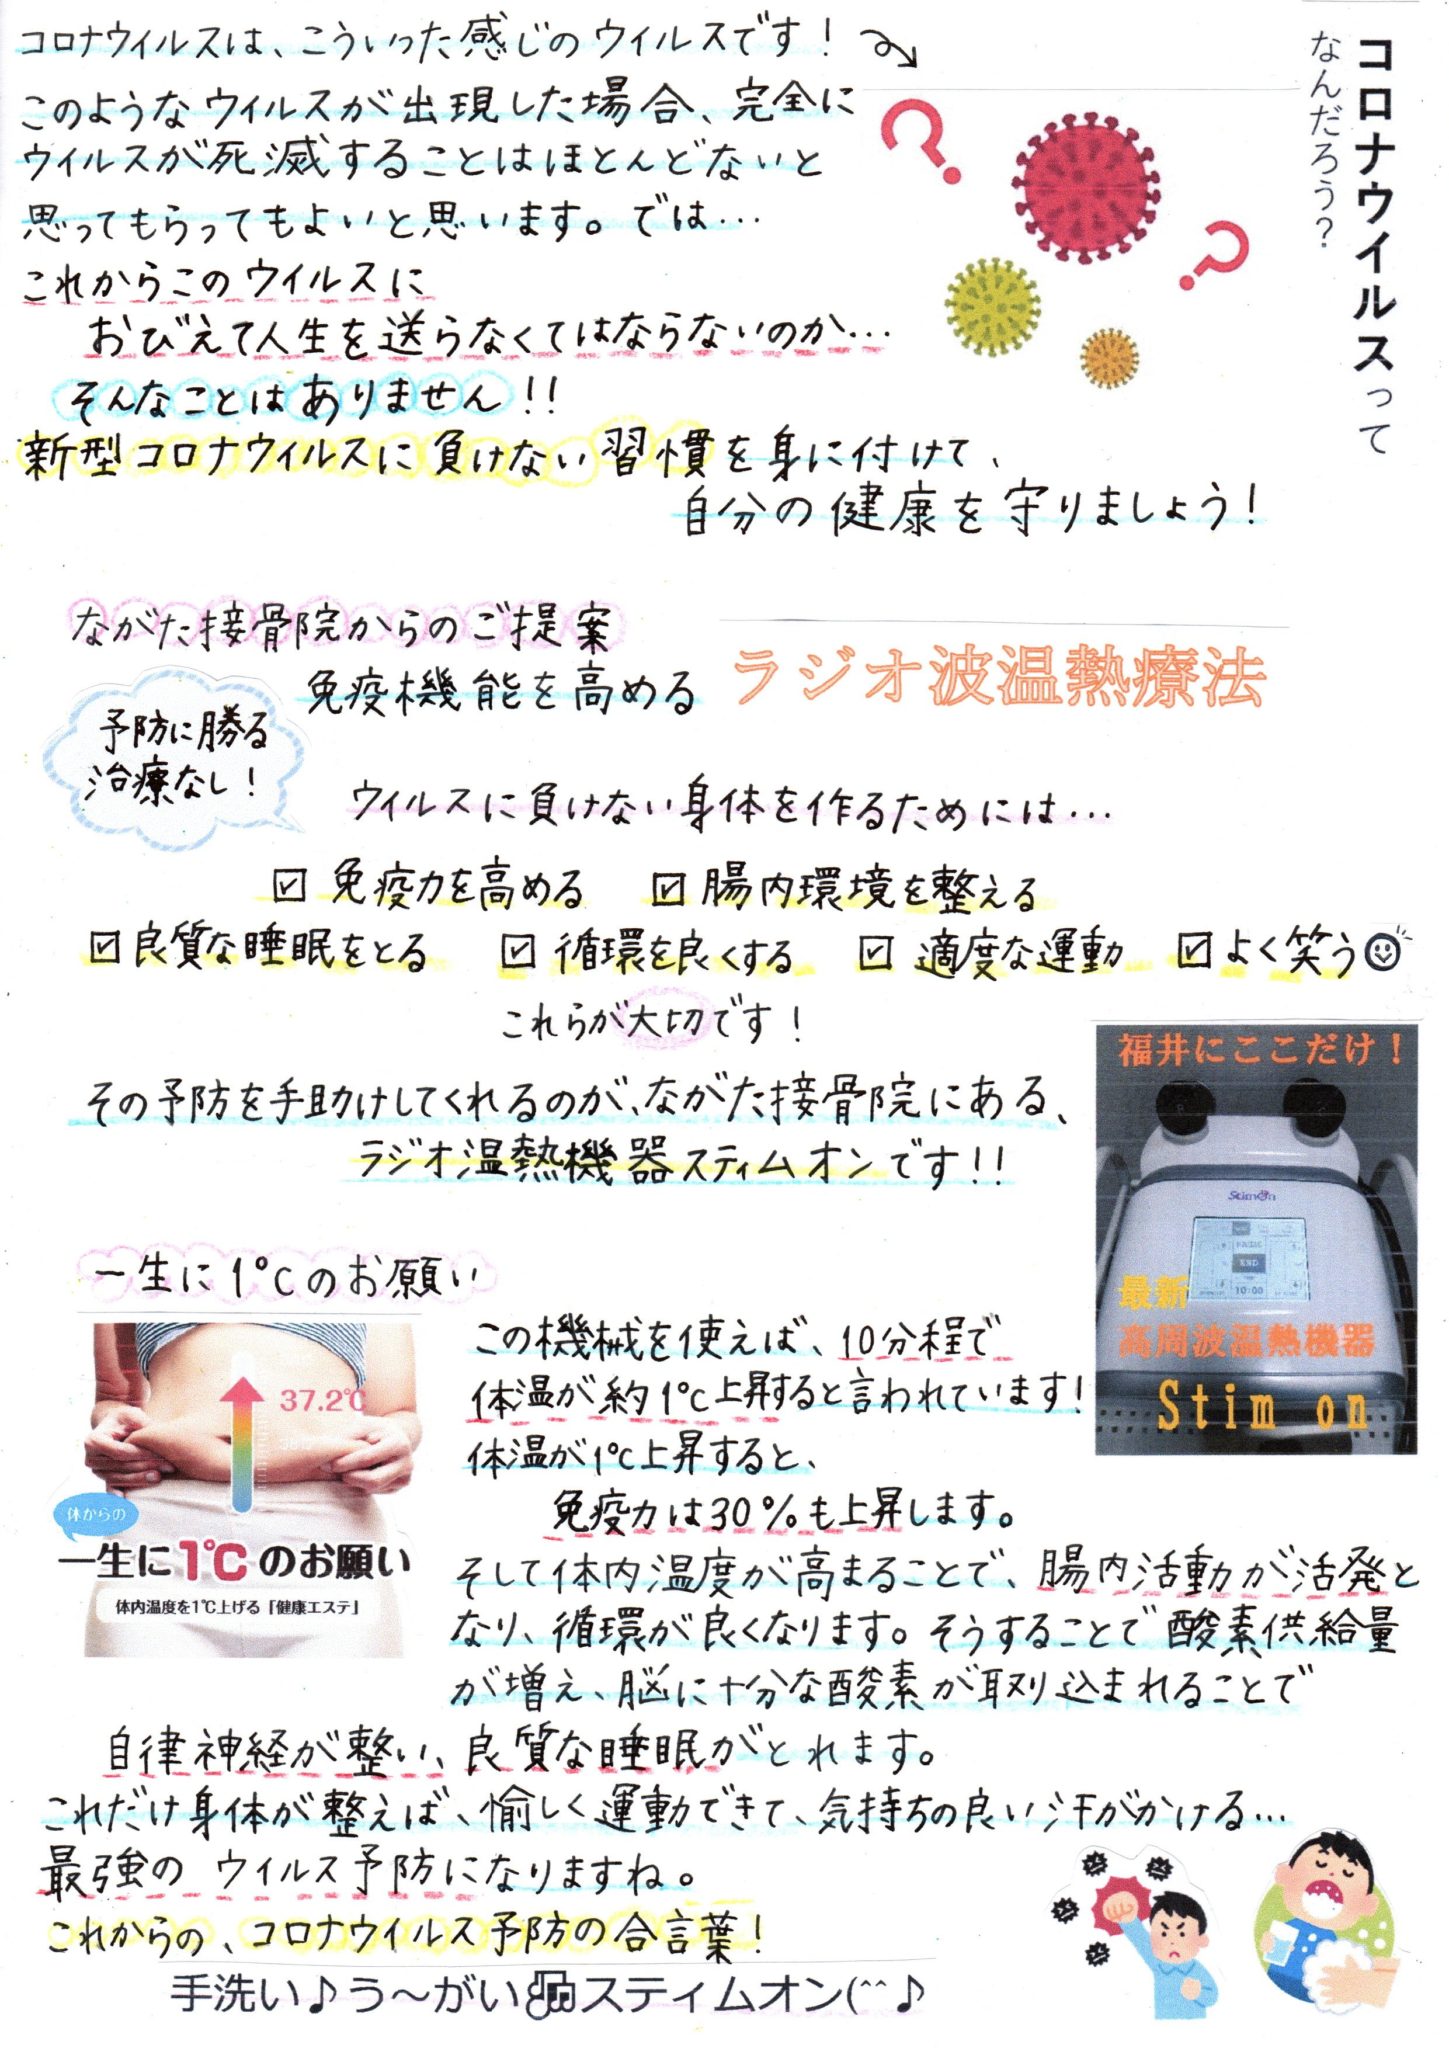 コロナウイルスって
なんだろう?
コロナウィルスは、こういった感じのウィルスです!
このようなウィルスが出現した場合、完全に
ウィルスが死滅することはほとんどないと
思ってもらってもよいと思います。では…
これからこのウィルスに
おびえて人生を送らなくてはならないのか…
そんなことはありません!!
新型コロナウィルスに負けない習慣を身に付けて、
自分の健康を守りましょう!
ながた接骨院からのご提案
免疫機能を高める ラジオ波温熱療法
予防に勝る
治療なし!
ウィルスに負けない身体を作るためには…
☑ 免疫力を高める ☑ 腸内環境を整える
☑ 良質な睡眠をとる ☑ 循環を良くする ☑ 適度な運動 ☑ よく笑う
これらが大切です!
その予防を手助けしてくれるのが、ながた接骨院にある、
ラジオ温熱機器スティムオンです!!
福井にここだけ!
Stimon
END
10:00
最新
高周波温熱機器
Stim on
一生に1℃のお願い
37.2℃
体からの
一生に1℃のお願い
体内温度を1℃上げる「健康エステ」
この機械を使えば、10分程で
体温が約1℃上昇すると言われています!
体温が1℃上昇すると、
免疫力は30%も上昇します。
そして体内温度が高まることで、腸内活動が活発と
なり、循環が良くなります。そうすることで酸素供給量
が増え、脳に十分な酸素が取り込まれることで
自律神経が整い、良質な睡眠がとれます。
これだけ身体が整えば、愉しく運動できて、気持ちの良い汗がかける…
最強の ウィルス予防になりますね。
これからの、コロナウィルス予防の合言葉!
手洗い♪う～がい🎶スティムオン(^^♪